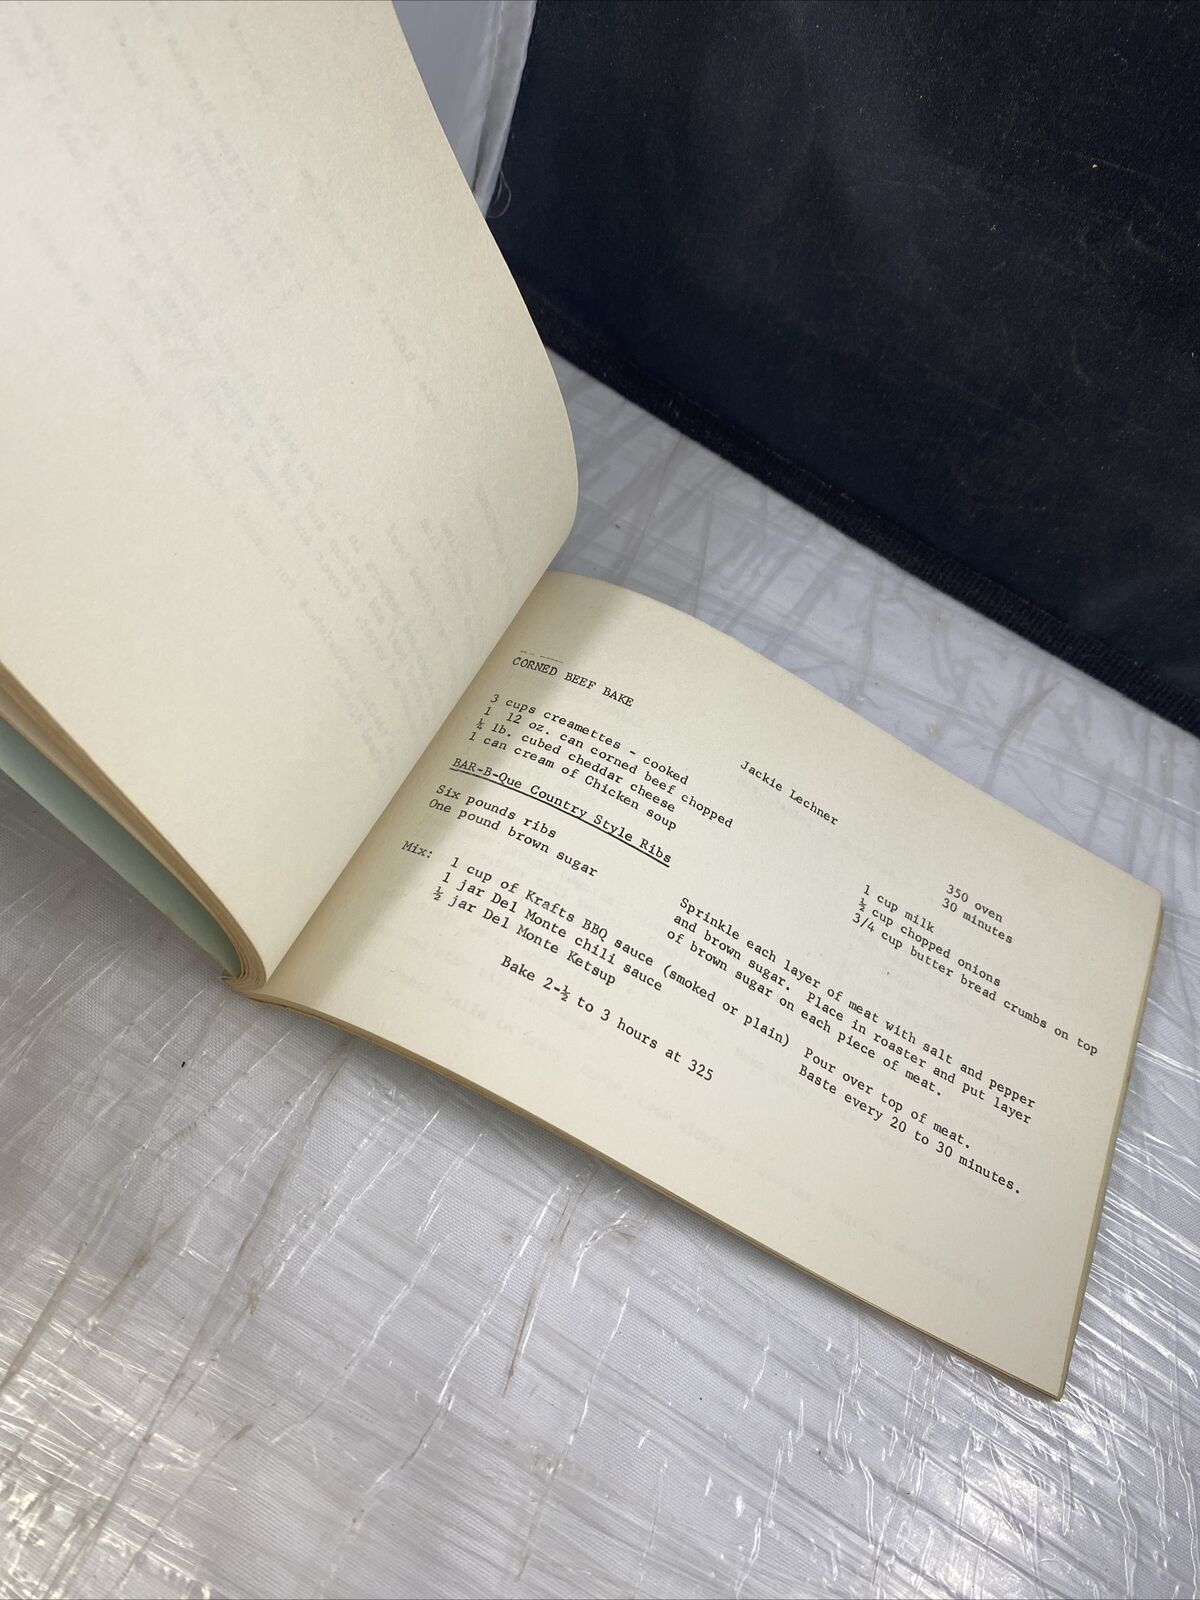 CORNED BEEF BAKE
Jackie Lechner
350 oven
30 minutes
3 cups creamettes - cooked
1 12 oz. can corned beef chopped
¼ lb. cubed cheddar cheese
1 can cream of Chicken soup
1 cup milk
½ cup chopped onions
3/4 cup butter bread crumbs on top
BAR-B-Que Country Style Ribs
Six pounds ribs
One pound brown sugar
Sprinkle each layer of meat with salt and pepper
and brown sugar. Place in roaster and put layer
of brown sugar on each piece of meat.
Mix:
1 cup of Krafts BBQ sauce (smoked or plain)
1 jar Del Monte chili sauce
½ jar Del Monte Ketsup
Pour over top of meat.
Baste every 20 to 30 minutes.
Bake 2-½ to 3 hours at 325